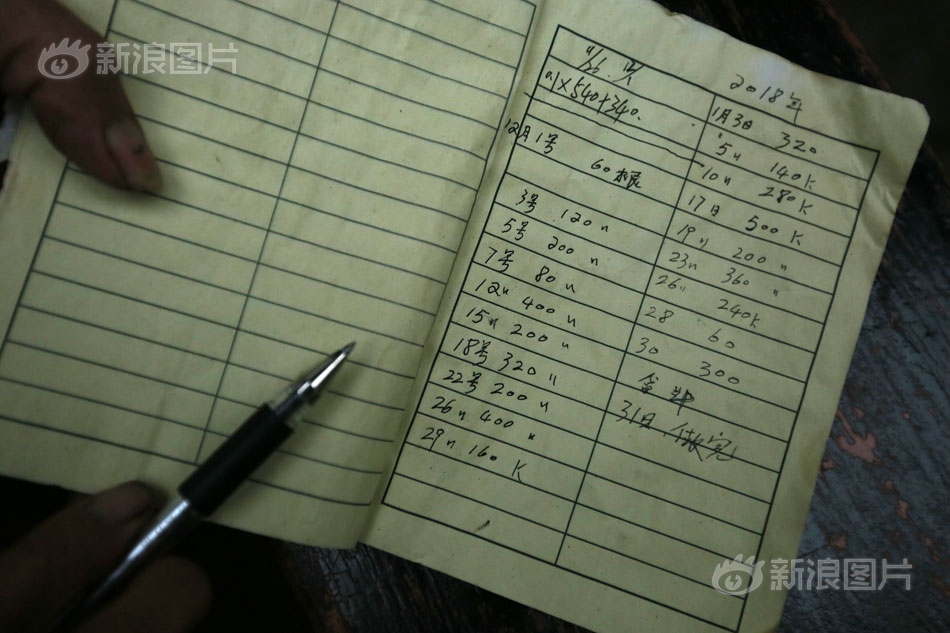 新浪图片
0.1×540+340.
12月1号
60根
3号 120〃
5号 200〃
7号 80〃
12〃 400〃
15〃 200〃
18号 320〃
22号 200〃
26〃 400〃
29〃 160 K
2018年
1月3日 320
5〃 140K
10〃 280K
17日 500K
19〃 200〃
23〃 360〃
26〃 240K
28 60
30 300
全部
31日 做完
新浪图片